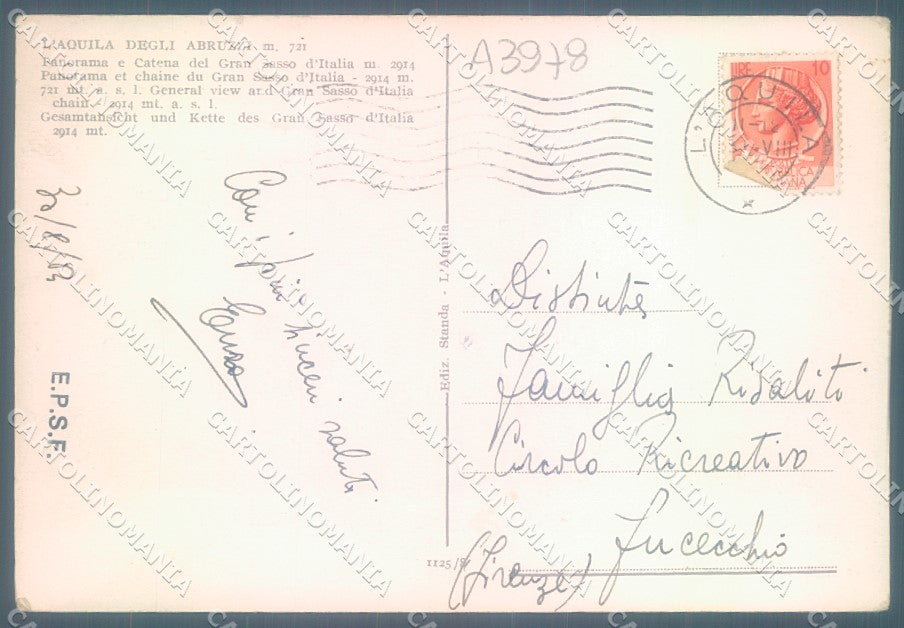 L'AQUILA DEGLI ABRUZZI m. 721
Panorama e Catena del Gran Sasso d'Italia m. 2914
Panorama et chaine du Gran Sasso d'Italia - 2914 m.
721 mt. a. s. l. General view and Gran Sasso d'Italia
chain - 2914 mt. a. s. l.
Gesamtansicht und Kette des Gran Sasso d'Italia
2914 mt.
A3978
LIRE 10
L'AQUILA
VIII
30/8/
Con i più sinceri saluti
Enzo
E.P.S.F.
Ediz. Standa - L'Aquila
1125/
Distinta
Famiglia Risaliti
Circolo Ricreativo
Fucecchio
(Firenze)
CARTOLINOMANIA